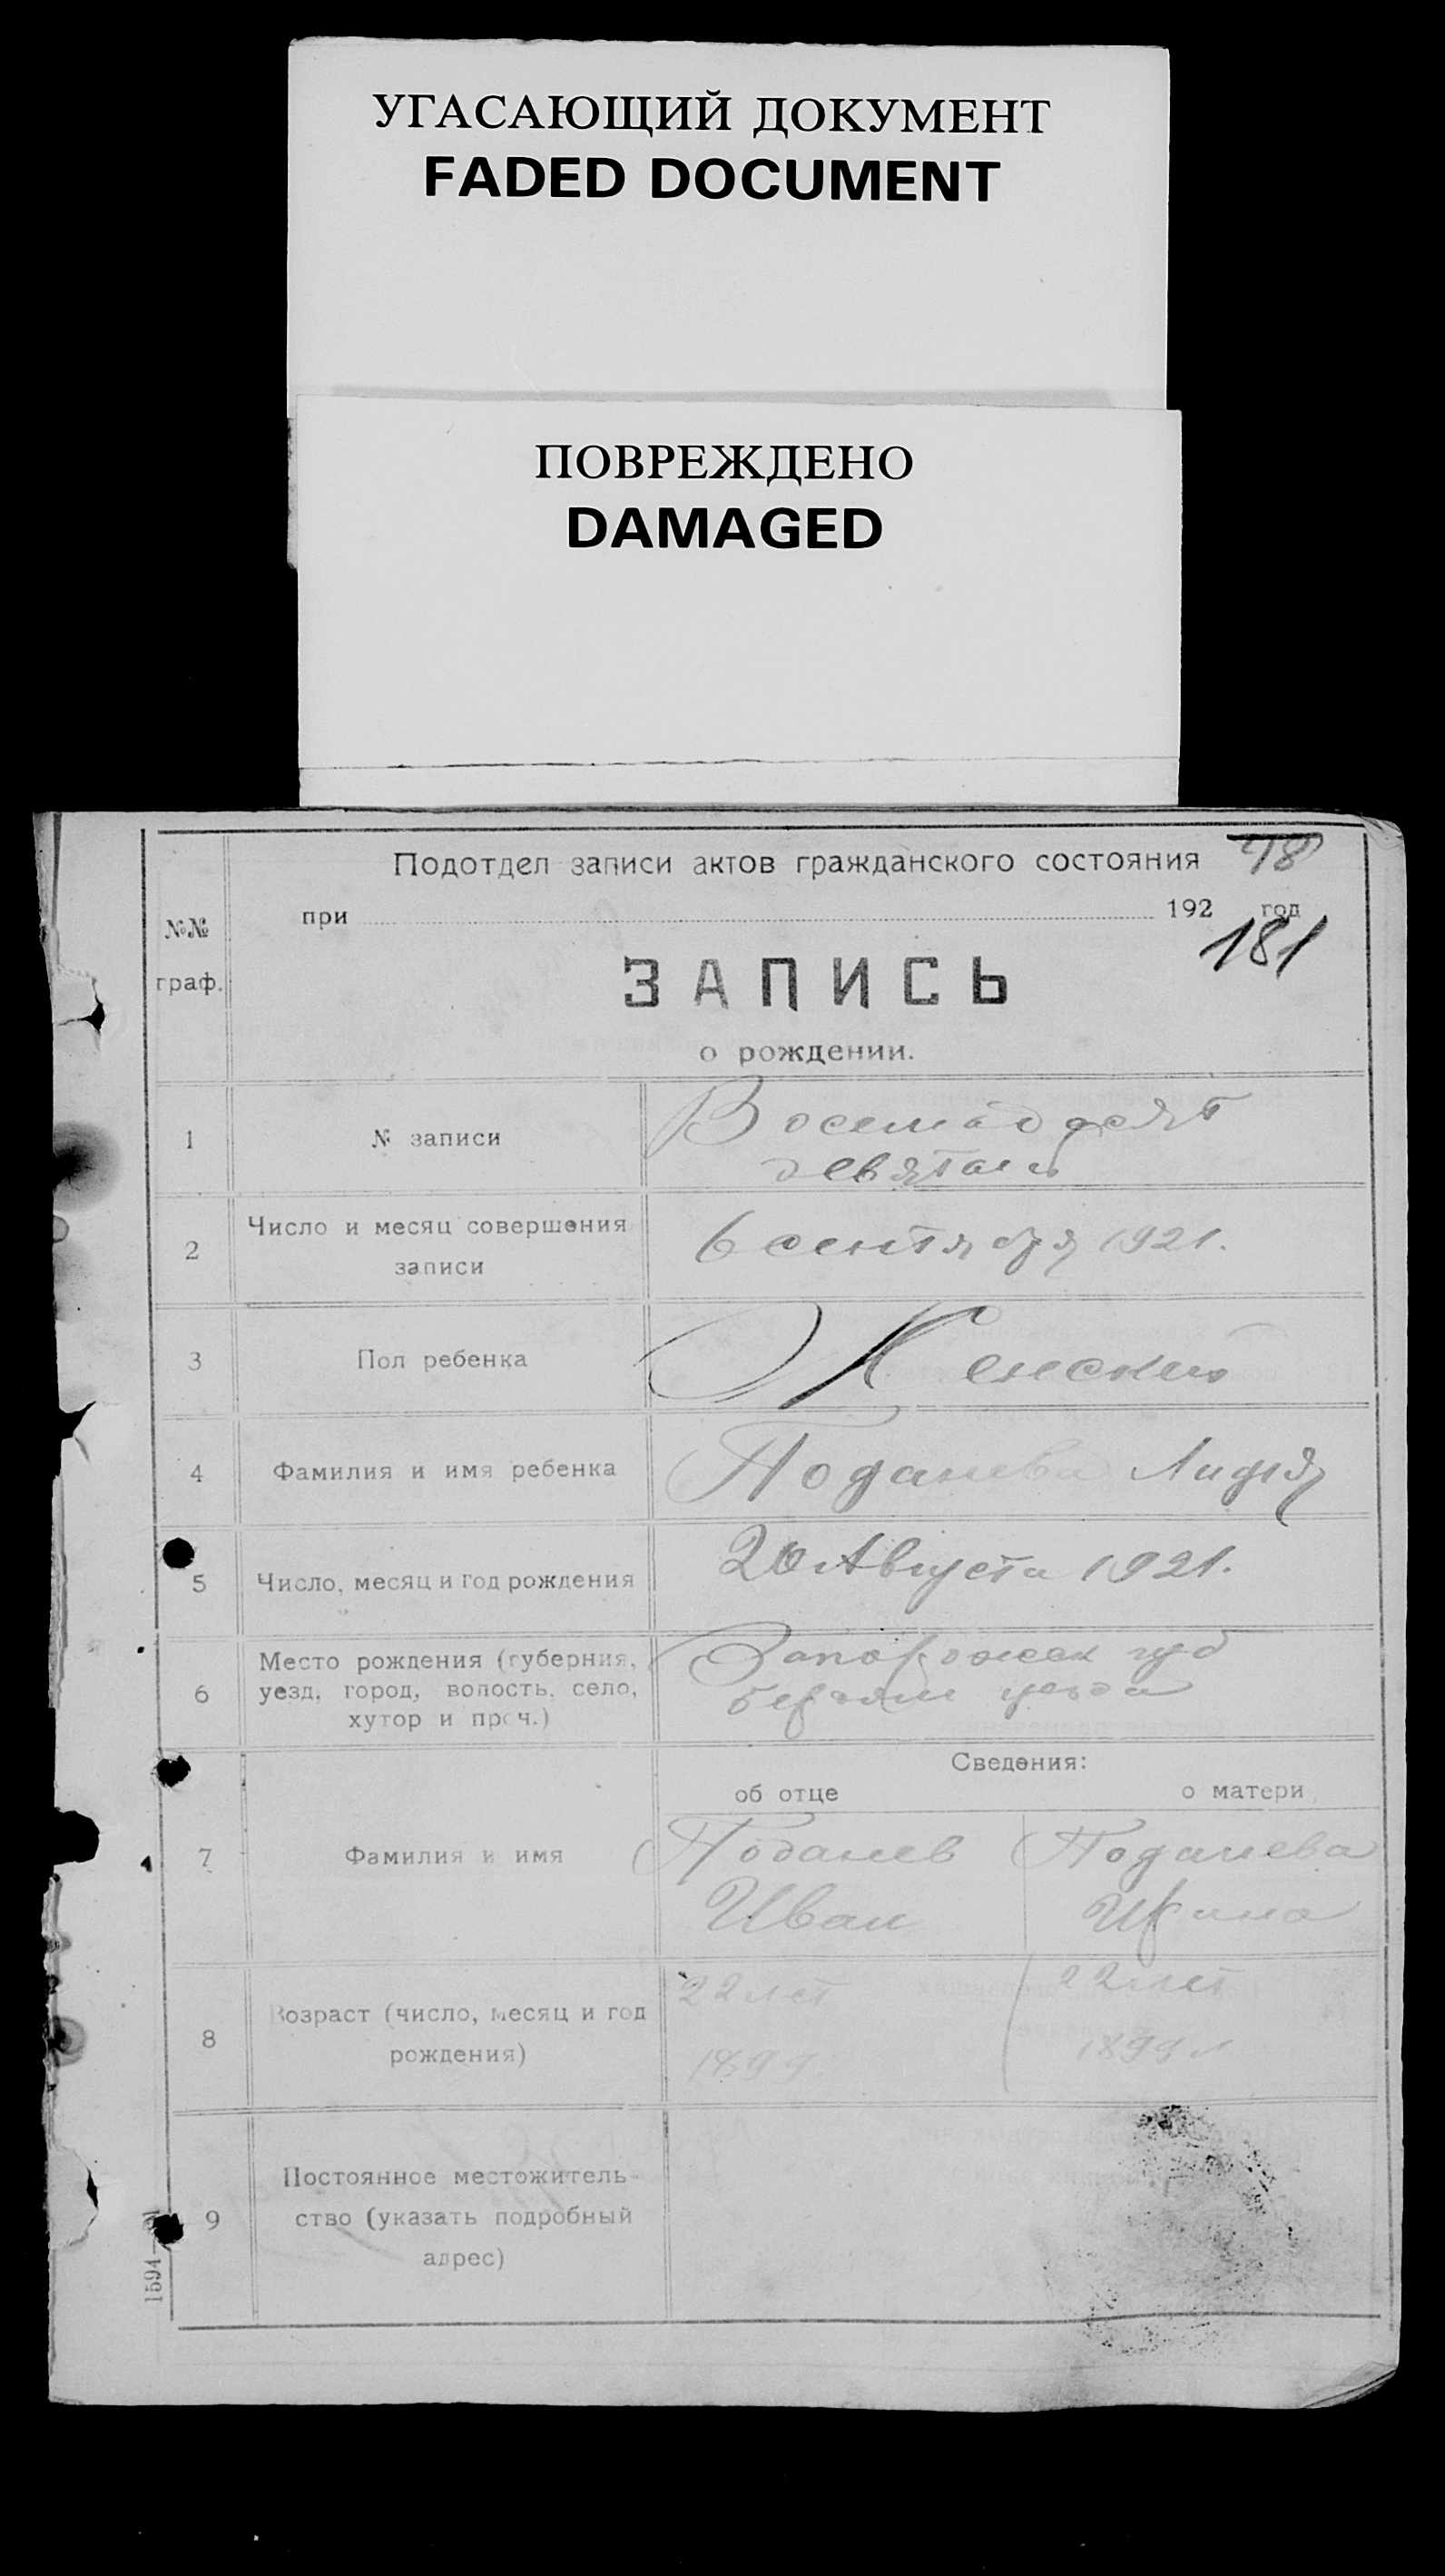 УГАСАЮЩИЙ ДОКУМЕНТ
FADED DOCUMENT
ПОВРЕЖДЕНО
DAMAGED
Подотдел записи актов гражданского состояния 78
№№ при 192 год
181
граф.
ЗАПИСЬ
о рождении.
1 № записи Восемьдесят
девятая
2 Число и месяц совершения записи 6 сентября 1921.
3 Пол ребенка Женский
4 Фамилия и имя ребенка Поданева Лидия
5 Число, месяц и год рождения 20 Августа 1921.
6 Место рождения (губерния, уезд, город, волость, село, хутор и проч.) Запорожск губ
Бердян уезда
Сведения:
об отце о матери
7 Фамилия и имя Поданев Поданева
Иван Ирина
8 Возраст (число, месяц и год рождения) 22 лет 22 лет
1899
9 Постоянное местожитель-
ство (указать подробный
адрес)
1594